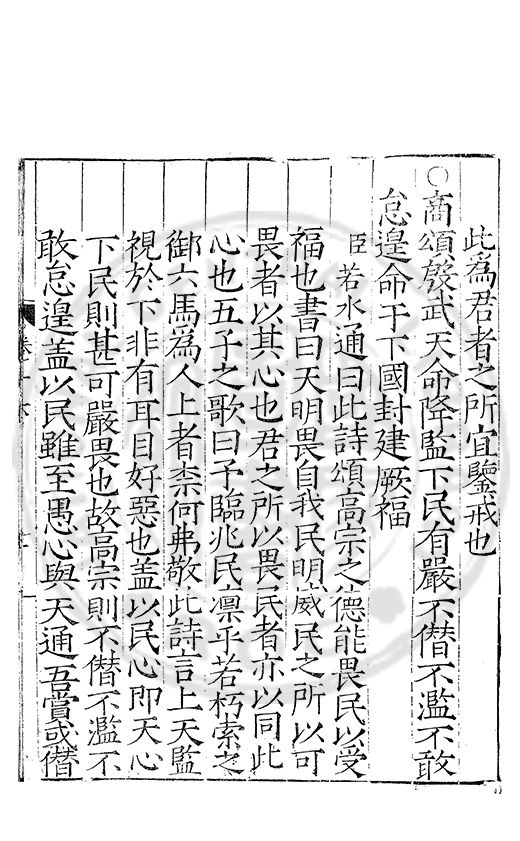 此為君者之所宜鑒戒也
○商頌殷武天命降監下民有嚴不僣不濫不敢
怠遑命于下國封建厥福
臣若水通曰此詩頌高宗之德能畏民以受
福也書曰天明畏自我民明威民之所以可
畏者以其心也君之所以畏民者亦以同此
心也五子之歌曰予臨兆民凜乎若朽索之
御六馬為人上者柰何弗敬此詩言上天監
視於下非有耳目好惡也蓋以民心即天心
下民則甚可嚴畏也故高宗則不僣不濫不
敢怠遑蓋以民雖至愚心與天通吾賞或僣